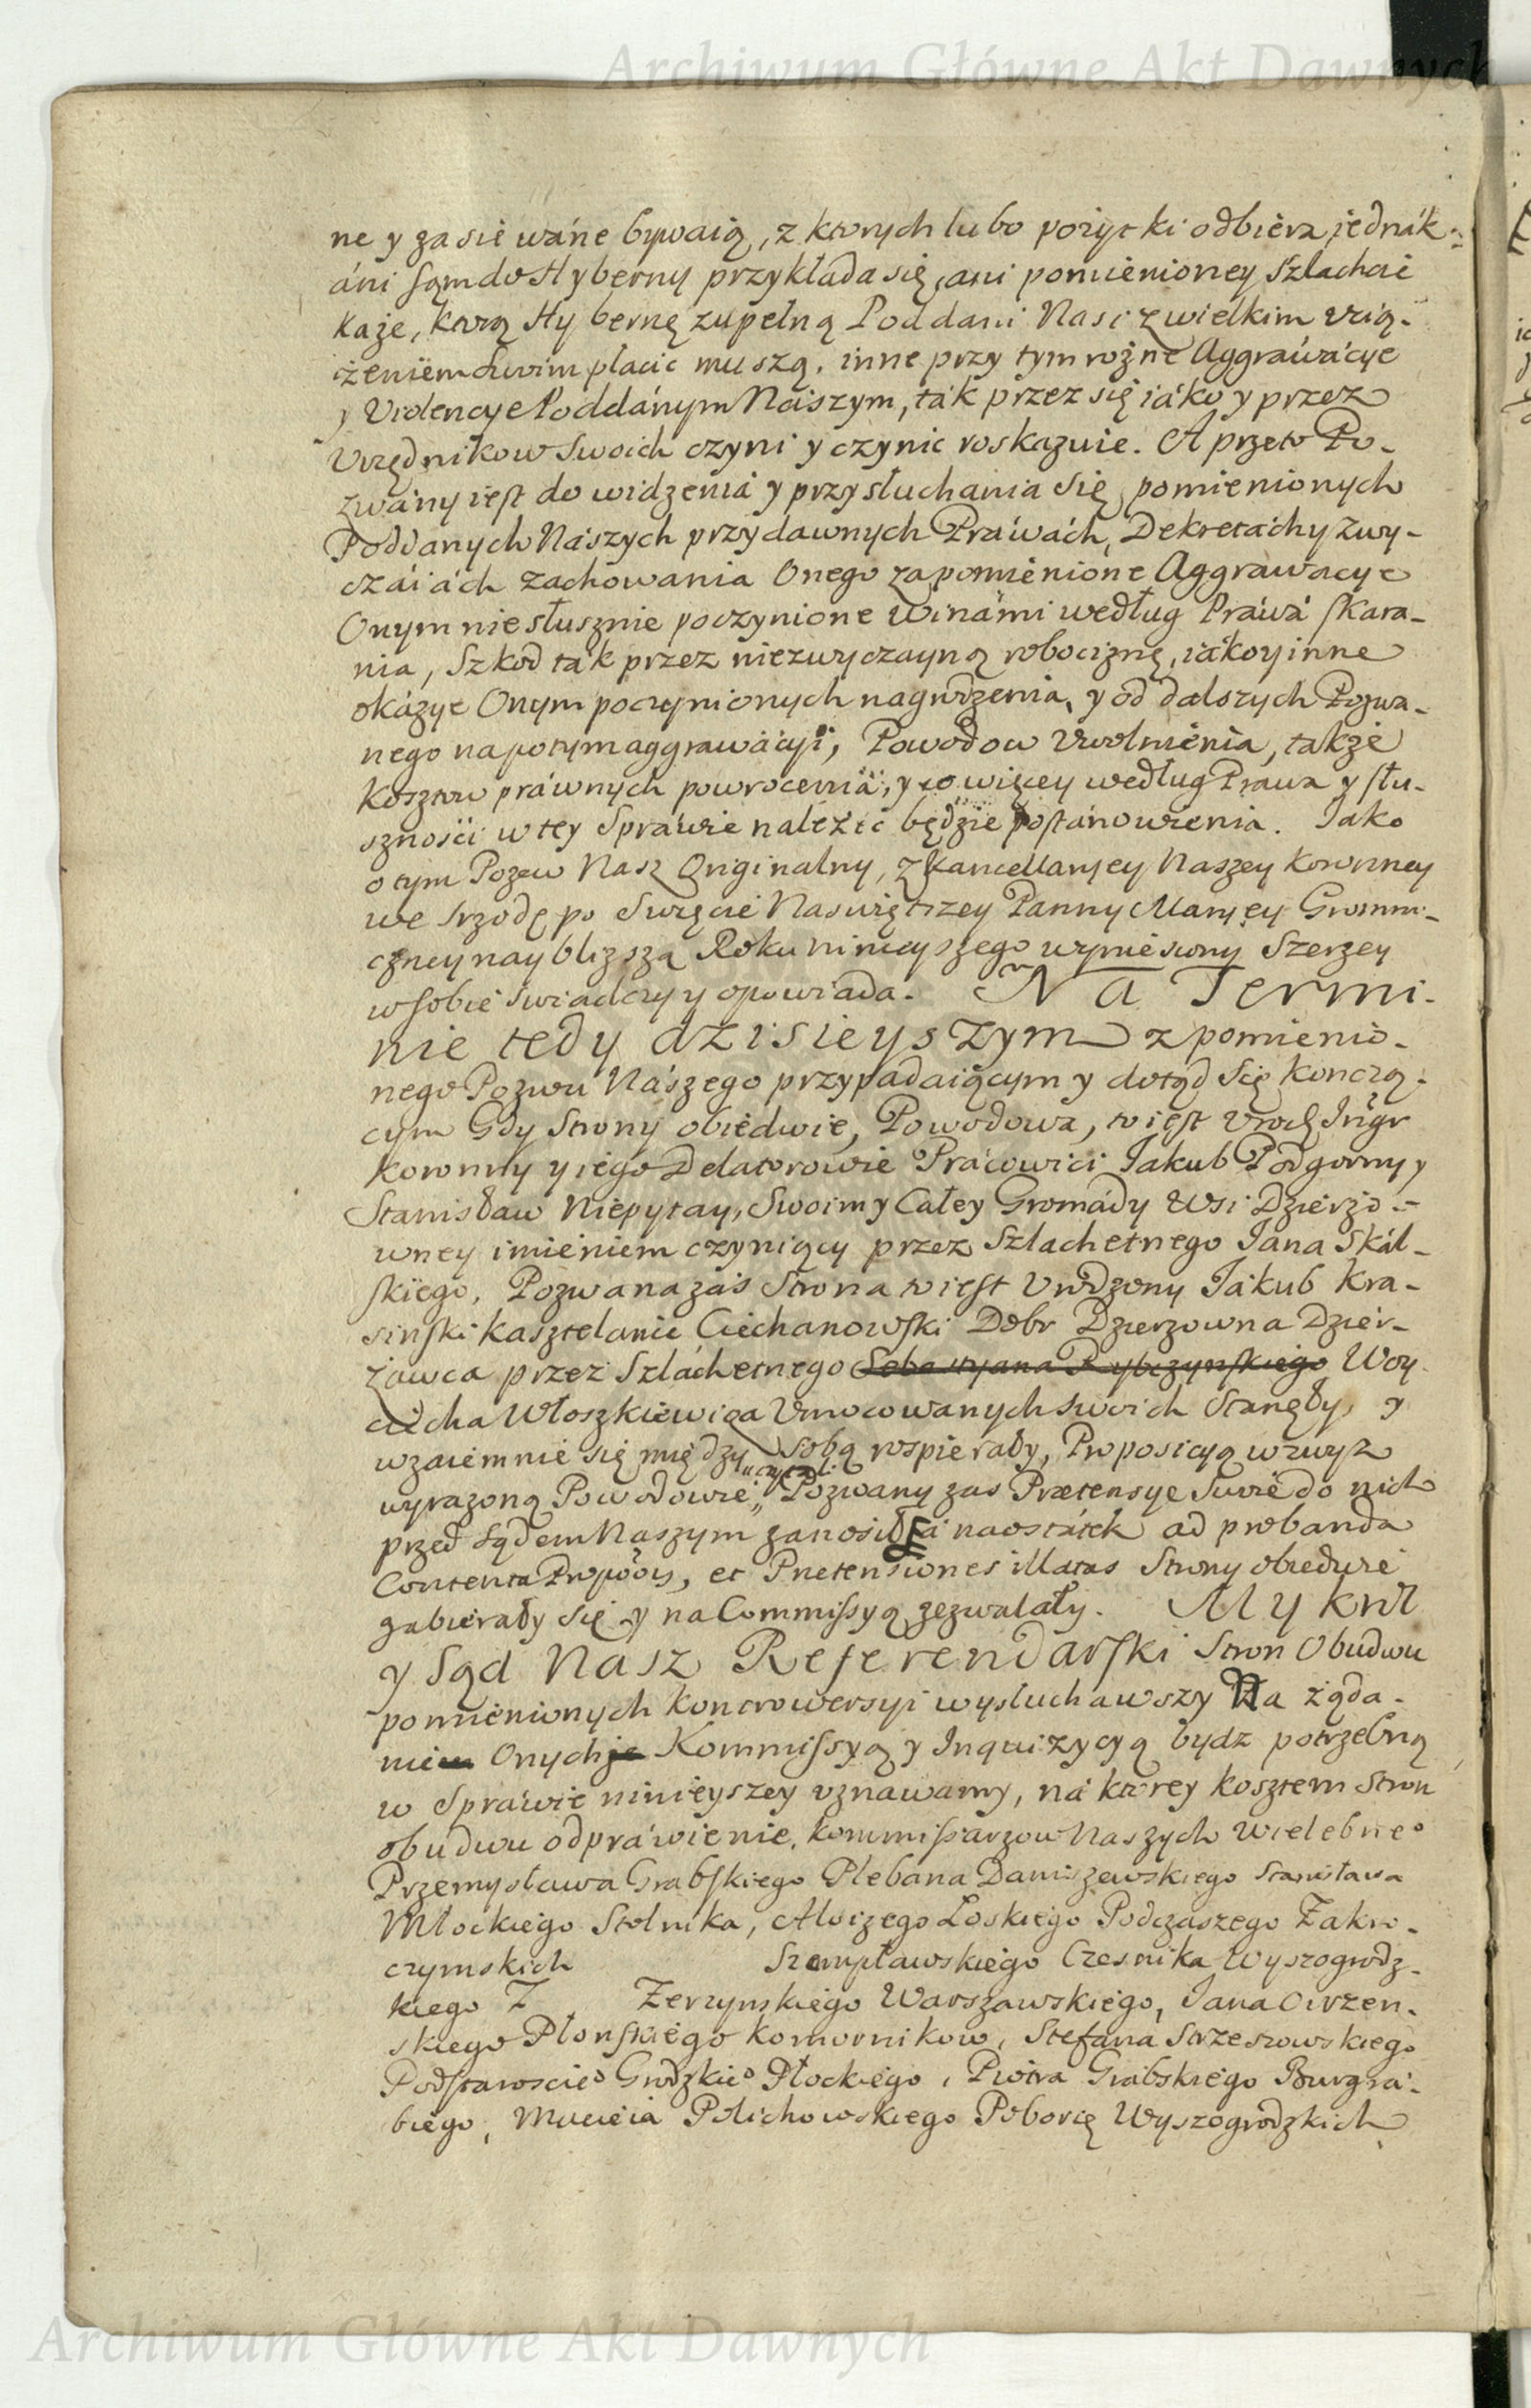 Archiwum Główne Akt Dawnych
ne y zasiewáne bywaią, z ktorych lubo pożytki odbiera jednák
áni sąm do Hyberny przykłada się, ani pomienioney Szlachcie
każe, ktorą Hybernę zupełną Poddani Nasi z wielkim vcią-
żeniem swoim płacic muszą, inne przy tym rożne Aggrawácye
y Violencye Poddánym Nászym, ták przez się iáko y przez
Vrzędnikow Swoich czyni y czynic roskazuie. A przeto Po-
zwány iest do widzenia y przysłuchania się, pomienionych
Poddanych Nászych przy dawnych Práwách, Dekretach y zwy-
czáiách zachowania Onego za pomienione Aggrawacye
Onym niesłusznie poczynione winámi według Práwá skara-
nia, Szkod ták przez niezwyczayną robociznę, iáko y inne
okázye Onym poczynionych nagrodzenia, y od dalszych Pozwa-
nego napotym aggrawácyi, Powodow Vwolnienia, także
Kosztow práwnych powrocenia, y co więcey według Prawa y słu-
sznosci w tey Spráwie należéc będzie postánowienia. Jako
o tym Pozew Nasz Originalny, z Kancellaryey Naszey Koronney
we Srzodę po Swięcie Naswiętszey Panny Maryey Gromni-
czney naybliższą Roku ninieyszego wyniesiony Szerzey
w sobie swiadczy y opowiada. Na Termi-
nie tedy dzisieyszym z pomienio-
nego Pozwu Nászego przypadaiącym y dotąd się kończą-
cym Gdy Strony obiedwie, Powodowa, to iest Vrodz Instigr
Koronny y iego Delatorowie Pracowici Jakub Podgorny y
Stanisław Niepytay, Swoim y Całey Gromády Wsi Dzierżo-
wney imieniem czyniący przez Szlachetnego Jana Skál-
skiego, Pozwana zás Strona to iest Vrodzony Jakub Kra-
sinski Kasztelanic Ciechanowski Dobr Dzierzowna Dzier-
żawca przez Szláchetnego Sebastyana Rybczynskiego Woy-
ciecha Włoszkiewicza Vmocowanych swoich Stanęły, y
wzaiemnie się między sobą wspierały, Proposicyą wzwysz
wyrażoną Powodowie Pozwany zas Prætensye Swoie do nich
przed Sądem Naszym zanosił á naostátek ad probanda
Contenta Proptõis, et Prætensiones illatas Strony obiedwie
zabierały się y na Commissyą zezwalały. My Krol
y Sąd Nasz Referendarski Stron Obudwu
pomienionych kontrowersyi wysłuchawszy Na żąda-
nie Onychże Kommissyą y Inquizycyą bydz potrzebną
w Spráwie ninieyszey vznawamy, ná ktorey kosztem Stron
obudwu odpráwienie, Kommissarzow Naszych Wielebneo
Przemysława Grabskiego Plebana Daniszewskiego Stanisława
Młockiego Stolnika, Aloizego Łoskiego Podczaszego Zakro-
czymskich Szempławskiego Czesnika Wyszogrodz-
kiego Z Zerzynskiego Warszawskiego, Jana Cirzen-
skiego Płonskiego Komornikow, Stefana Strzeszowskiego
Podstaroscieo Grodzkieo Płockiego, Piotra Grabskiego Burgra-
biego, Macieia Polichowskiego Poborcę Wyszogrodzkich
Archiwum Główne Akt Dawnych